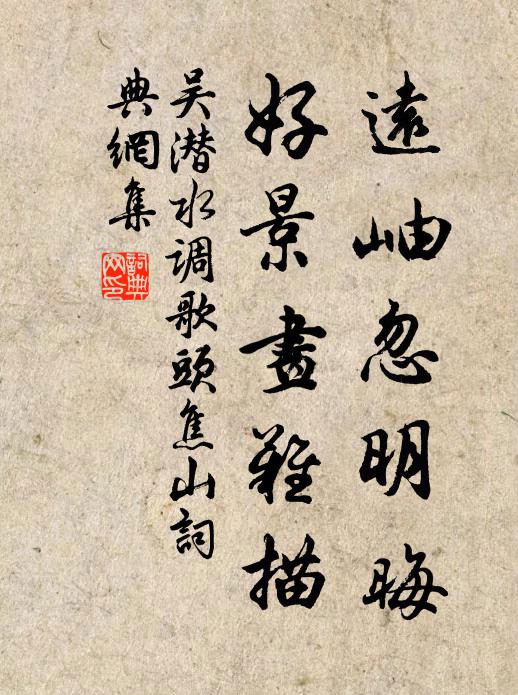 遠岫忽明晦
好景畫難描
吴潜水调歌頭焦山詞
典網集
詞典网印